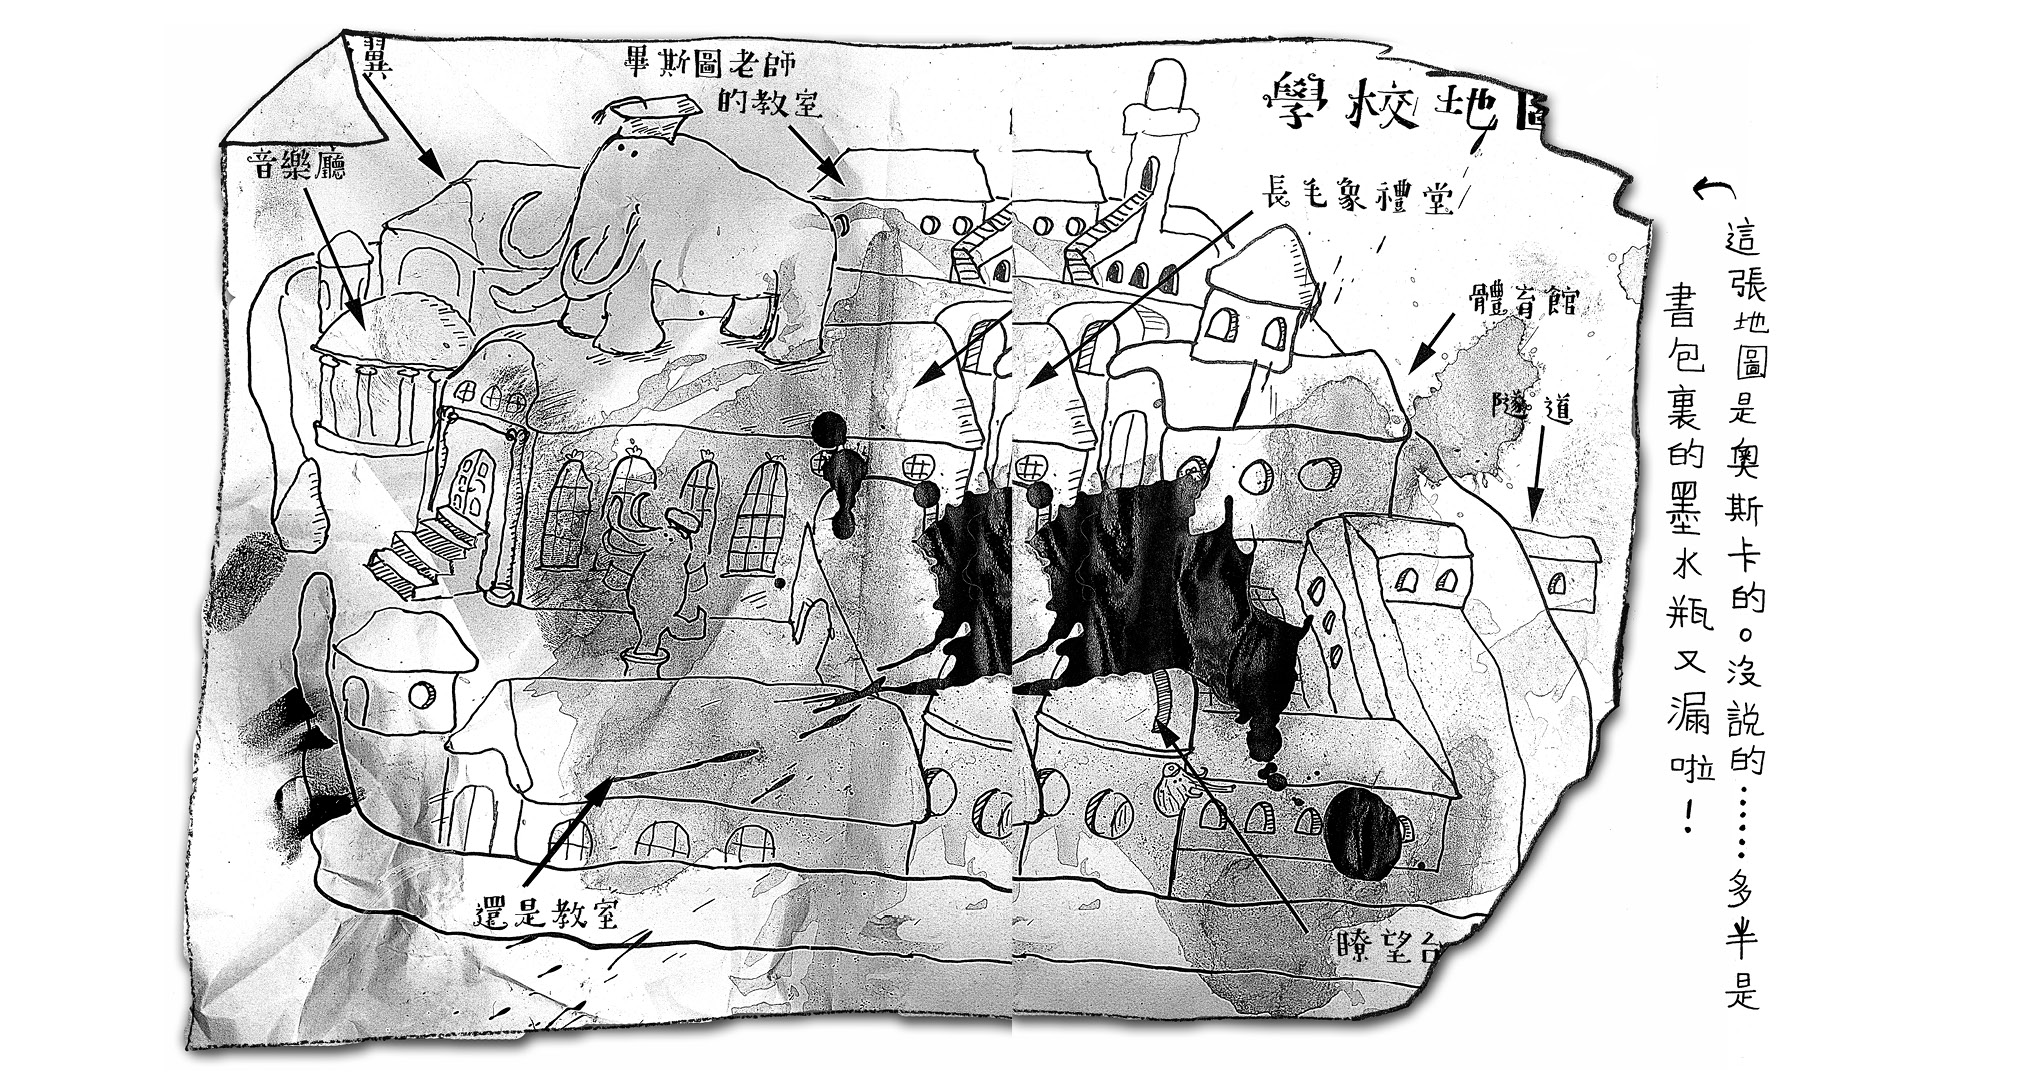 學校地圖
翼
畢斯圖老師
的教室
音樂廳
長毛象禮堂
體育館
隧道
還是教室
瞭望台
這張地圖是奧斯卡的。沒說的……多半是
書包裏的墨水瓶又漏啦！